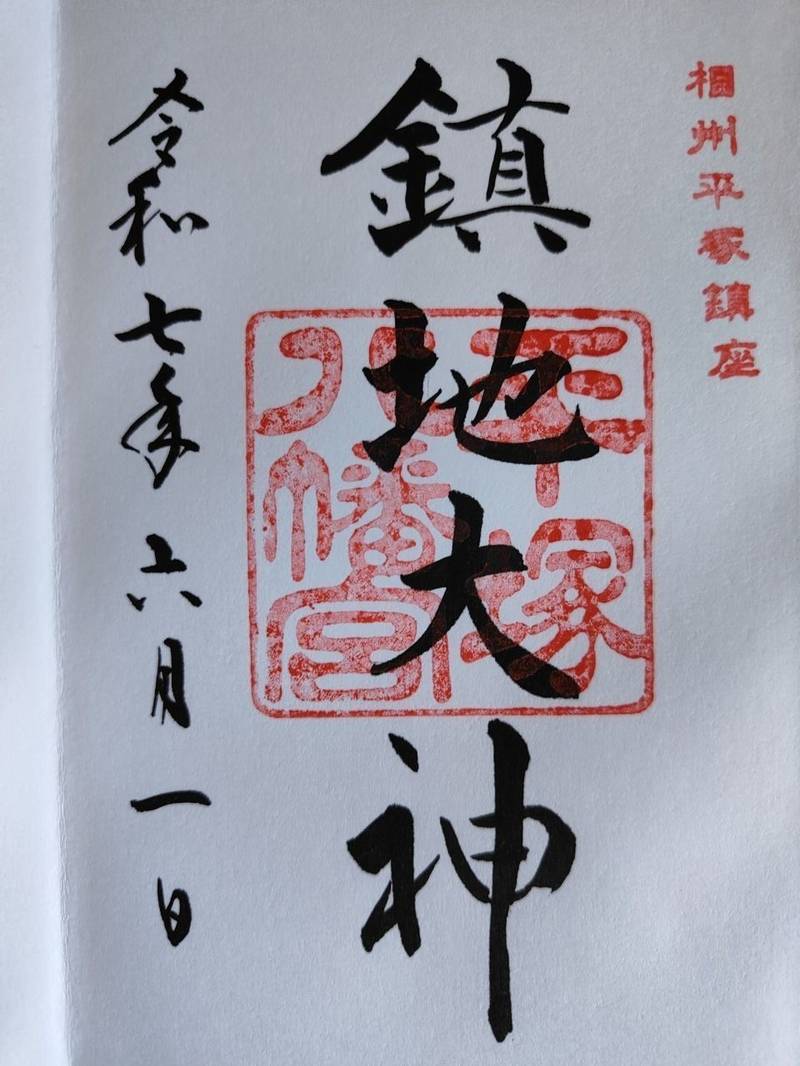 相州平塚鎮座
鎮地大神
平塚
八幡宮
令和七年六月一日